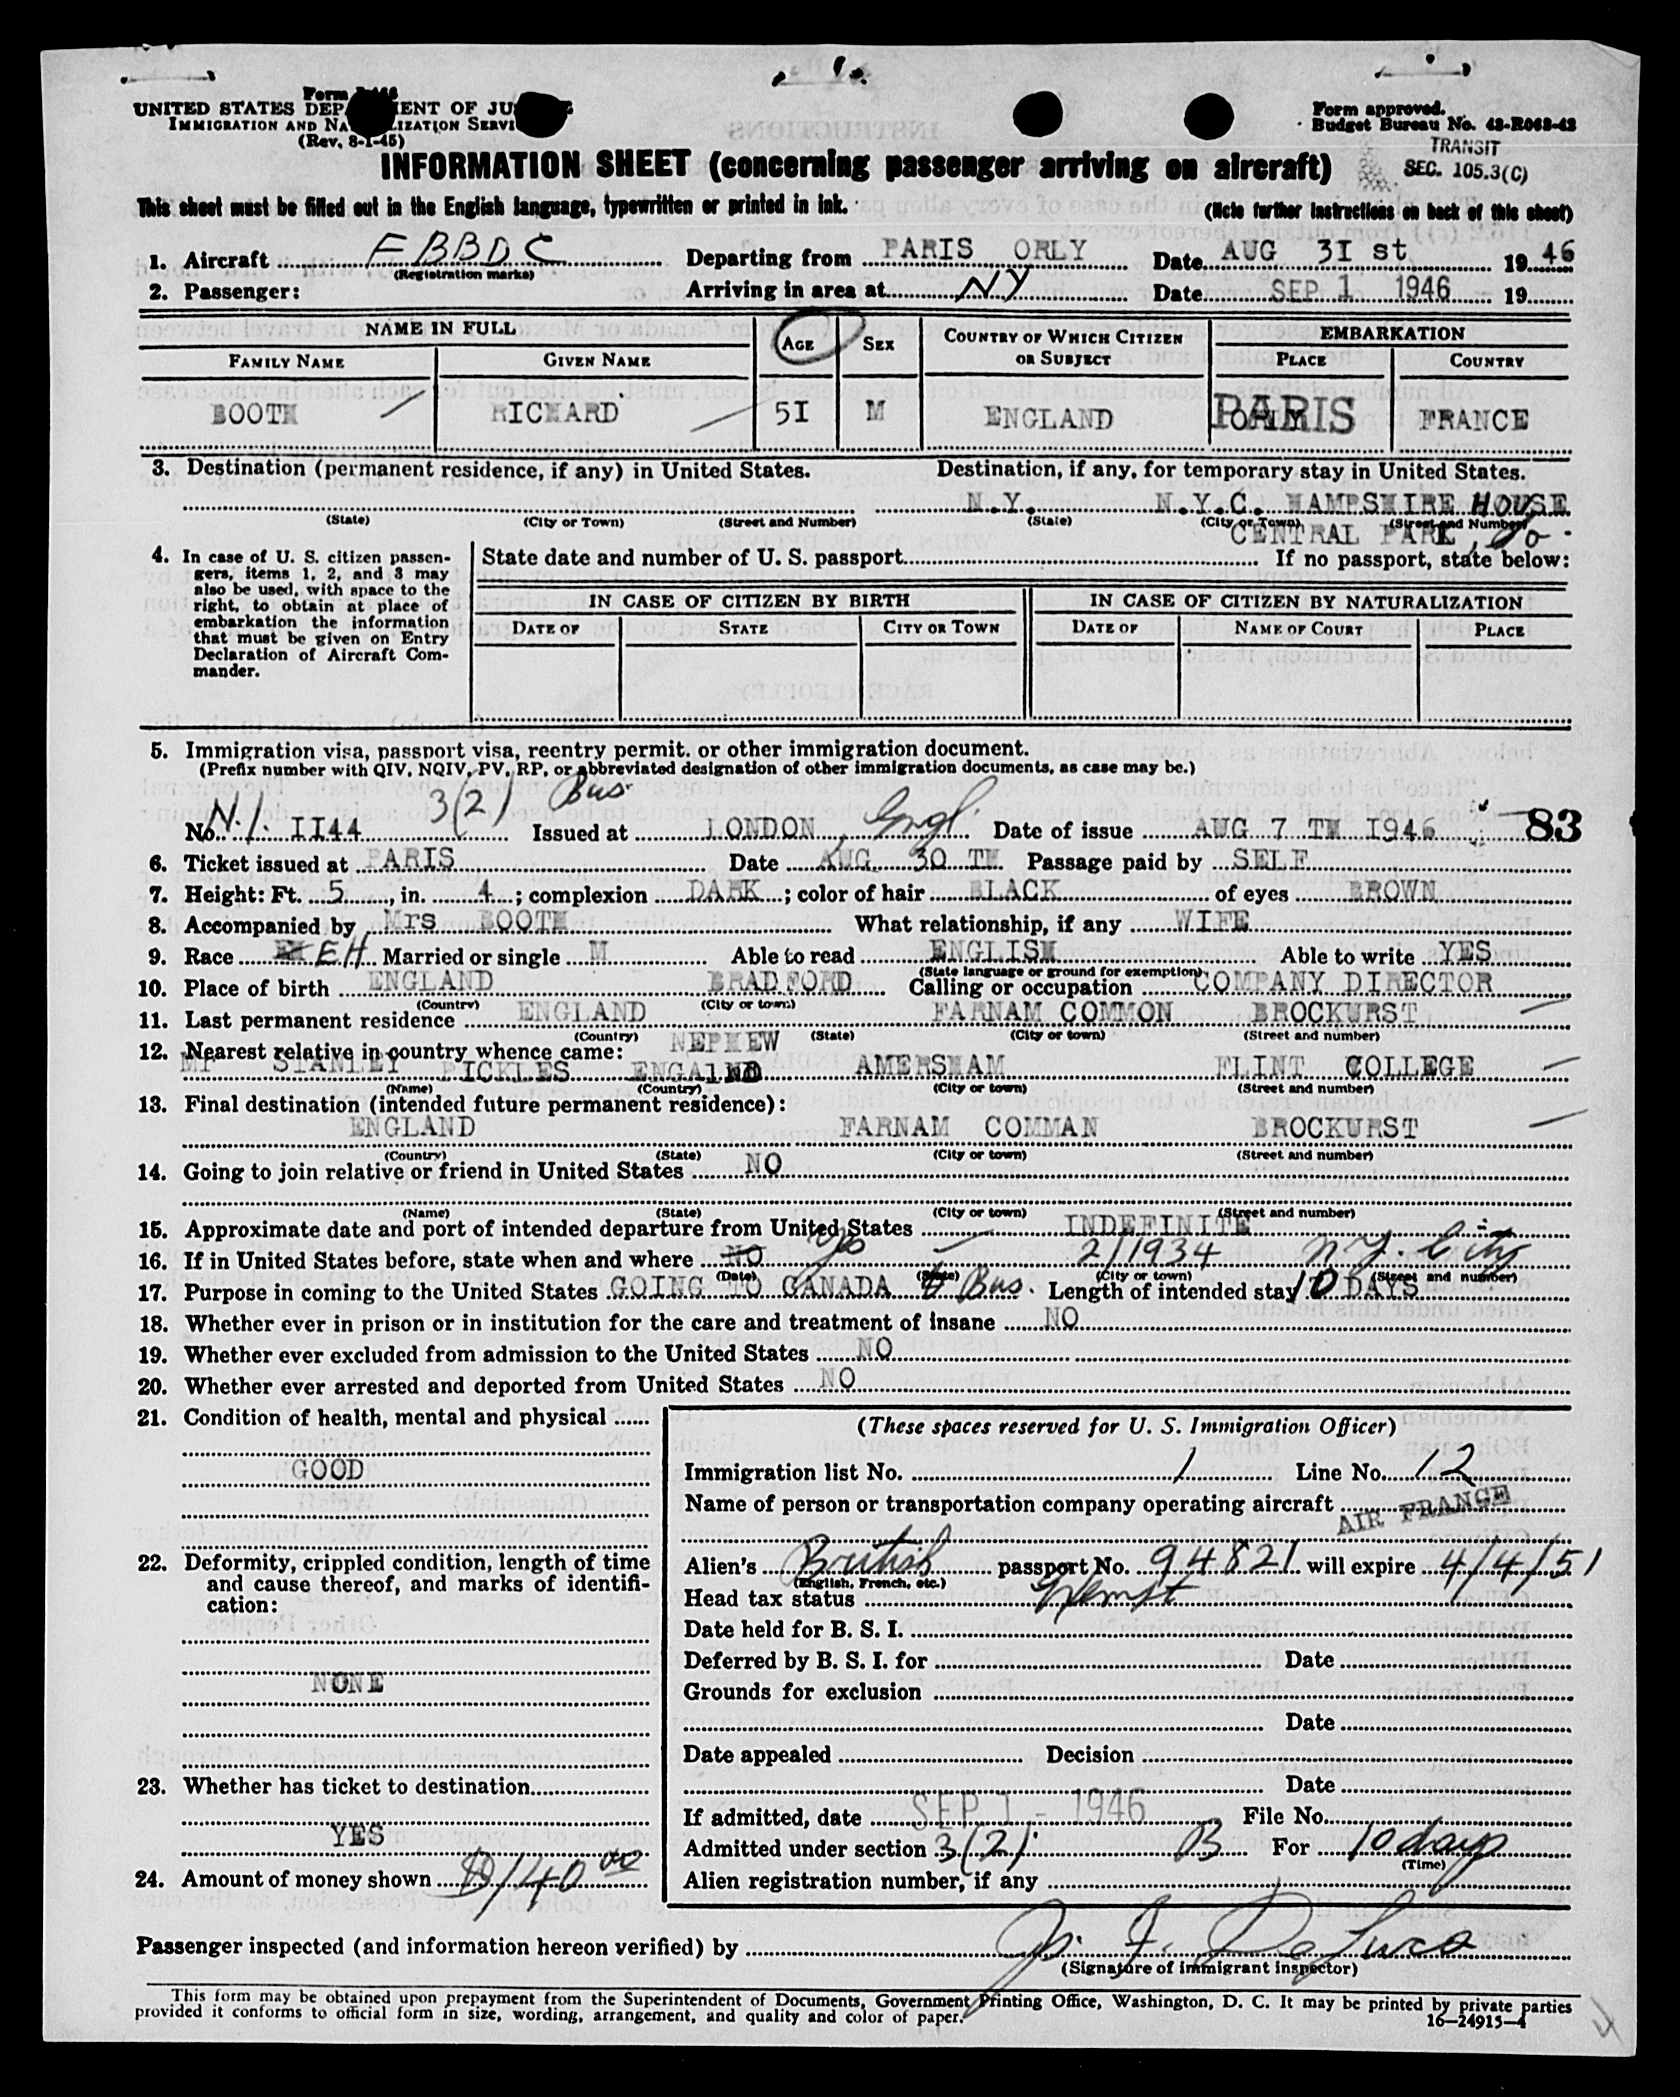 Form
UNITED STATES DEPARTMENT OF JUSTICE
IMMIGRATION AND NATURALIZATION SERVICE
(Rev. 8-1-45)
Form approved.
Budget Bureau No. 43-R063-42
TRANSIT
SEC. 105.3(C)
INFORMATION SHEET (concerning passenger arriving on aircraft)
This sheet must be filled out in the English language, typewritten or printed in ink.
(Note further instructions on back of this sheet)
1. Aircraft FBBDC Departing from PARIS ORLY Date AUG 3I st 19 46
(Registration marks)
2. Passenger: Arriving in area at NY Date SEP 1 1946 19
NAME IN FULL AGE SEX COUNTRY OF WHICH CITIZEN OR SUBJECT EMBARKATION
FAMILY NAME GIVEN NAME PLACE COUNTRY
BOOTH RICHARD 5I M ENGLAND PARIS FRANCE
3. Destination (permanent residence, if any) in United States. Destination, if any, for temporary stay in United States.
N.Y. N.Y.C. HAMPSHIRE HOUSE
(State) (City or Town) (Street and Number) (State) (City or Town) (Street and Number)
CENTRAL PARK, So.
4. In case of U. S. citizen passen-
gers, items 1, 2, and 3 may
also be used, with space to the
right, to obtain at place of
embarkation the information
that must be given on Entry
Declaration of Aircraft Com-
mander.
State date and number of U. S. passport If no passport, state below:
IN CASE OF CITIZEN BY BIRTH IN CASE OF CITIZEN BY NATURALIZATION
DATE OF STATE CITY OR TOWN DATE OF NAME OF COURT PLACE
5. Immigration visa, passport visa, reentry permit, or other immigration document.
(Prefix number with QIV, NQIV, PV, RP, or abbreviated designation of other immigration documents, as case may be.)
3(2) Bus.
No. N.I. II44 Issued at LONDON, Engl. Date of issue AUG 7 TH I946 83
6. Ticket issued at PARIS Date AUG 30 TH Passage paid by SELF
7. Height: Ft. 5, in. 4; complexion DARK; color of hair BLACK of eyes BROWN
8. Accompanied by Mrs BOOTH What relationship, if any WIFE
9. Race EH Married or single M Able to read ENGLISH Able to write YES
(State language or ground for exemption)
10. Place of birth ENGLAND BRADFORD Calling or occupation COMPANY DIRECTOR
(Country) (City or town)
11. Last permanent residence ENGLAND FARNAM COMMON BROCKURST
(Country) (State) (City or town) (Street and number)
12. Nearest relative in country whence came: NEPHEW
Mr STANLEY PICKLES ENGAlND AMERSHAM FLINT COLLEGE
(Name) (Country) (City or town) (Street and number)
13. Final destination (intended future permanent residence):
ENGLAND FARNAM COMMAN BROCKURST
(Country) (State) (City or town) (Street and number)
14. Going to join relative or friend in United States NO
(Name) (State) (City or town) (Street and number)
15. Approximate date and port of intended departure from United States INDEFINITE
16. If in United States before, state when and where NO Yes 2/1934 N.Y. City
(Date) (State) (City or town) (Street and number)
17. Purpose in coming to the United States GOING TO CANADA & Bus. Length of intended stay 10 DAYS
18. Whether ever in prison or in institution for the care and treatment of insane NO
19. Whether ever excluded from admission to the United States NO
20. Whether ever arrested and deported from United States NO
21. Condition of health, mental and physical
GOOD
22. Deformity, crippled condition, length of time
and cause thereof, and marks of identifi-
cation:
NONE
23. Whether has ticket to destination
YES
24. Amount of money shown $140 00
(These spaces reserved for U. S. Immigration Officer)
Immigration list No. 1 Line No. 12
Name of person or transportation company operating aircraft AIR FRANCE
Alien's British passport No. 94821 will expire 4/4/51
(English, French, etc.)
Head tax status Exempt
Date held for B. S. I.
Deferred by B. S. I. for Date
Grounds for exclusion
Date
Date appealed Decision
Date
If admitted, date SEP 1 - 1946 File No.
Admitted under section 3(2) B For 10 days
(Time)
Alien registration number, if any
Passenger inspected (and information hereon verified) by J. J. DeLuca
(Signature of immigrant inspector)
This form may be obtained upon prepayment from the Superintendent of Documents, Government Printing Office, Washington, D. C. It may be printed by private parties
provided it conforms to official form in size, wording, arrangement, and quality and color of paper.
16—24915-4